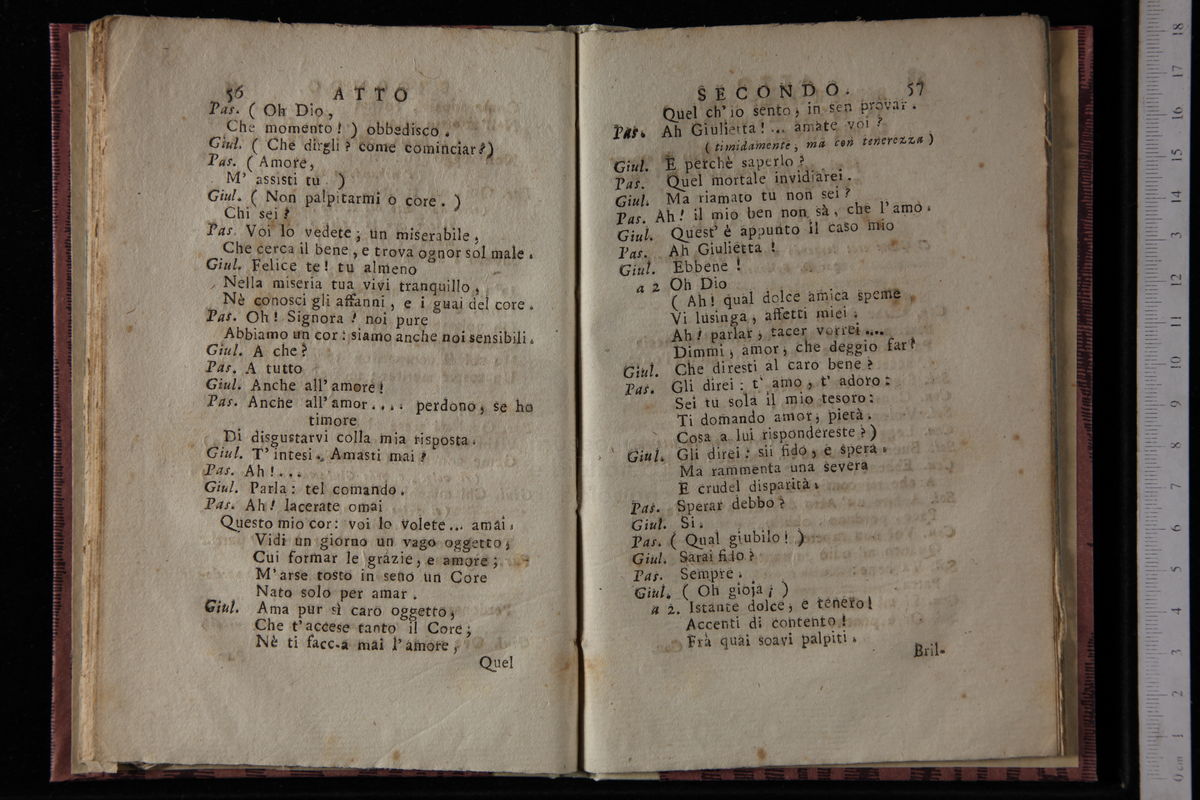 56 ATTO
Pas. ( Oh Dio,
Che momento! ) obbedisco.
Giul. ( Che dirgli? come cominciar?)
Pas. ( Amore,
M' assisti tu. )
Giul. ( Non palpitarmi o core. )
Chi sei?
Pas. Voi lo vedete; un miserabile,
Che cerca il bene, e trova ognor sol male.
Giul. Felice te! tu almeno
Nella miseria tua vivi tranquillo,
Nè conosci gli affanni, e i guai del core.
Pas. Oh! Signora! noi pure
Abbiamo un cor: siamo anche noi sensibili.
Giul. A che?
Pas. A tutto
Giul. Anche all' amore!
Pas. Anche all' amor.... perdono, se ho
timore
Di disgustarvi colla mia risposta.
Giul. T' intesi. Amasti mai?
Pas. Ah!...
Giul. Parla: tel comando.
Pas. Ah! lacerate omai
Questo mio cor: voi lo volete... amai.
Vidi un giorno un vago oggetto,
Cui formar le grazie, e amore;
M' arse tosto in seno un Core
Nato solo per amar.
Giul. Ama pur sì caro oggetto,
Che t' accese tanto il Core;
Nè ti faccia mai l' amore,
Quel
SECONDO. 57
Quel ch' io sento, in sen provar.
Pas. Ah Giulietta!... amate voi?
( timidamente, ma con tenerezza )
Giul. E perchè saperlo?
Pas. Quel mortale invidiarei.
Giul. Ma riamato tu non sei?
Pas. Ah! il mio ben non sà, che l' amo.
Giul. Quest' è appunto il caso mio
Pas. Ah Giulietta!
Giul. Ebbene!
a 2 Oh Dio
( Ah! qual dolce amica speme
Vi lusinga, affetti miei.
Ah! parlar, tacer vorrei....
Dimmi, amor, che deggio far?
Giul. Che diresti al caro bene?
Pas. Gli direi: t' amo, t' adoro:
Sei tu sola il mio tesoro:
Ti domando amor, pietà.
Cosa a lui rispondereste?)
Giul. Gli direi: sii fido, e spera.
Ma rammenta una severa
E crudel disparità.
Pas. Sperar debbo?
Giul. Si.
Pas. ( Qual giubilo! )
Giul. Sarai fido?
Pas. Sempre.
Giul. ( Oh gioja; )
a 2. Istante dolce, e tenero!
Accenti di contento!
Frà quai soavi palpiti.
Bril-